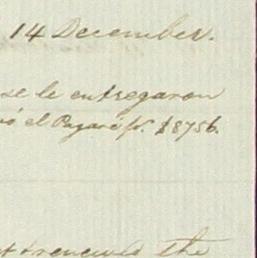 14 December.
se le entregaron
el Pagaré pr. $8756.
renewed the